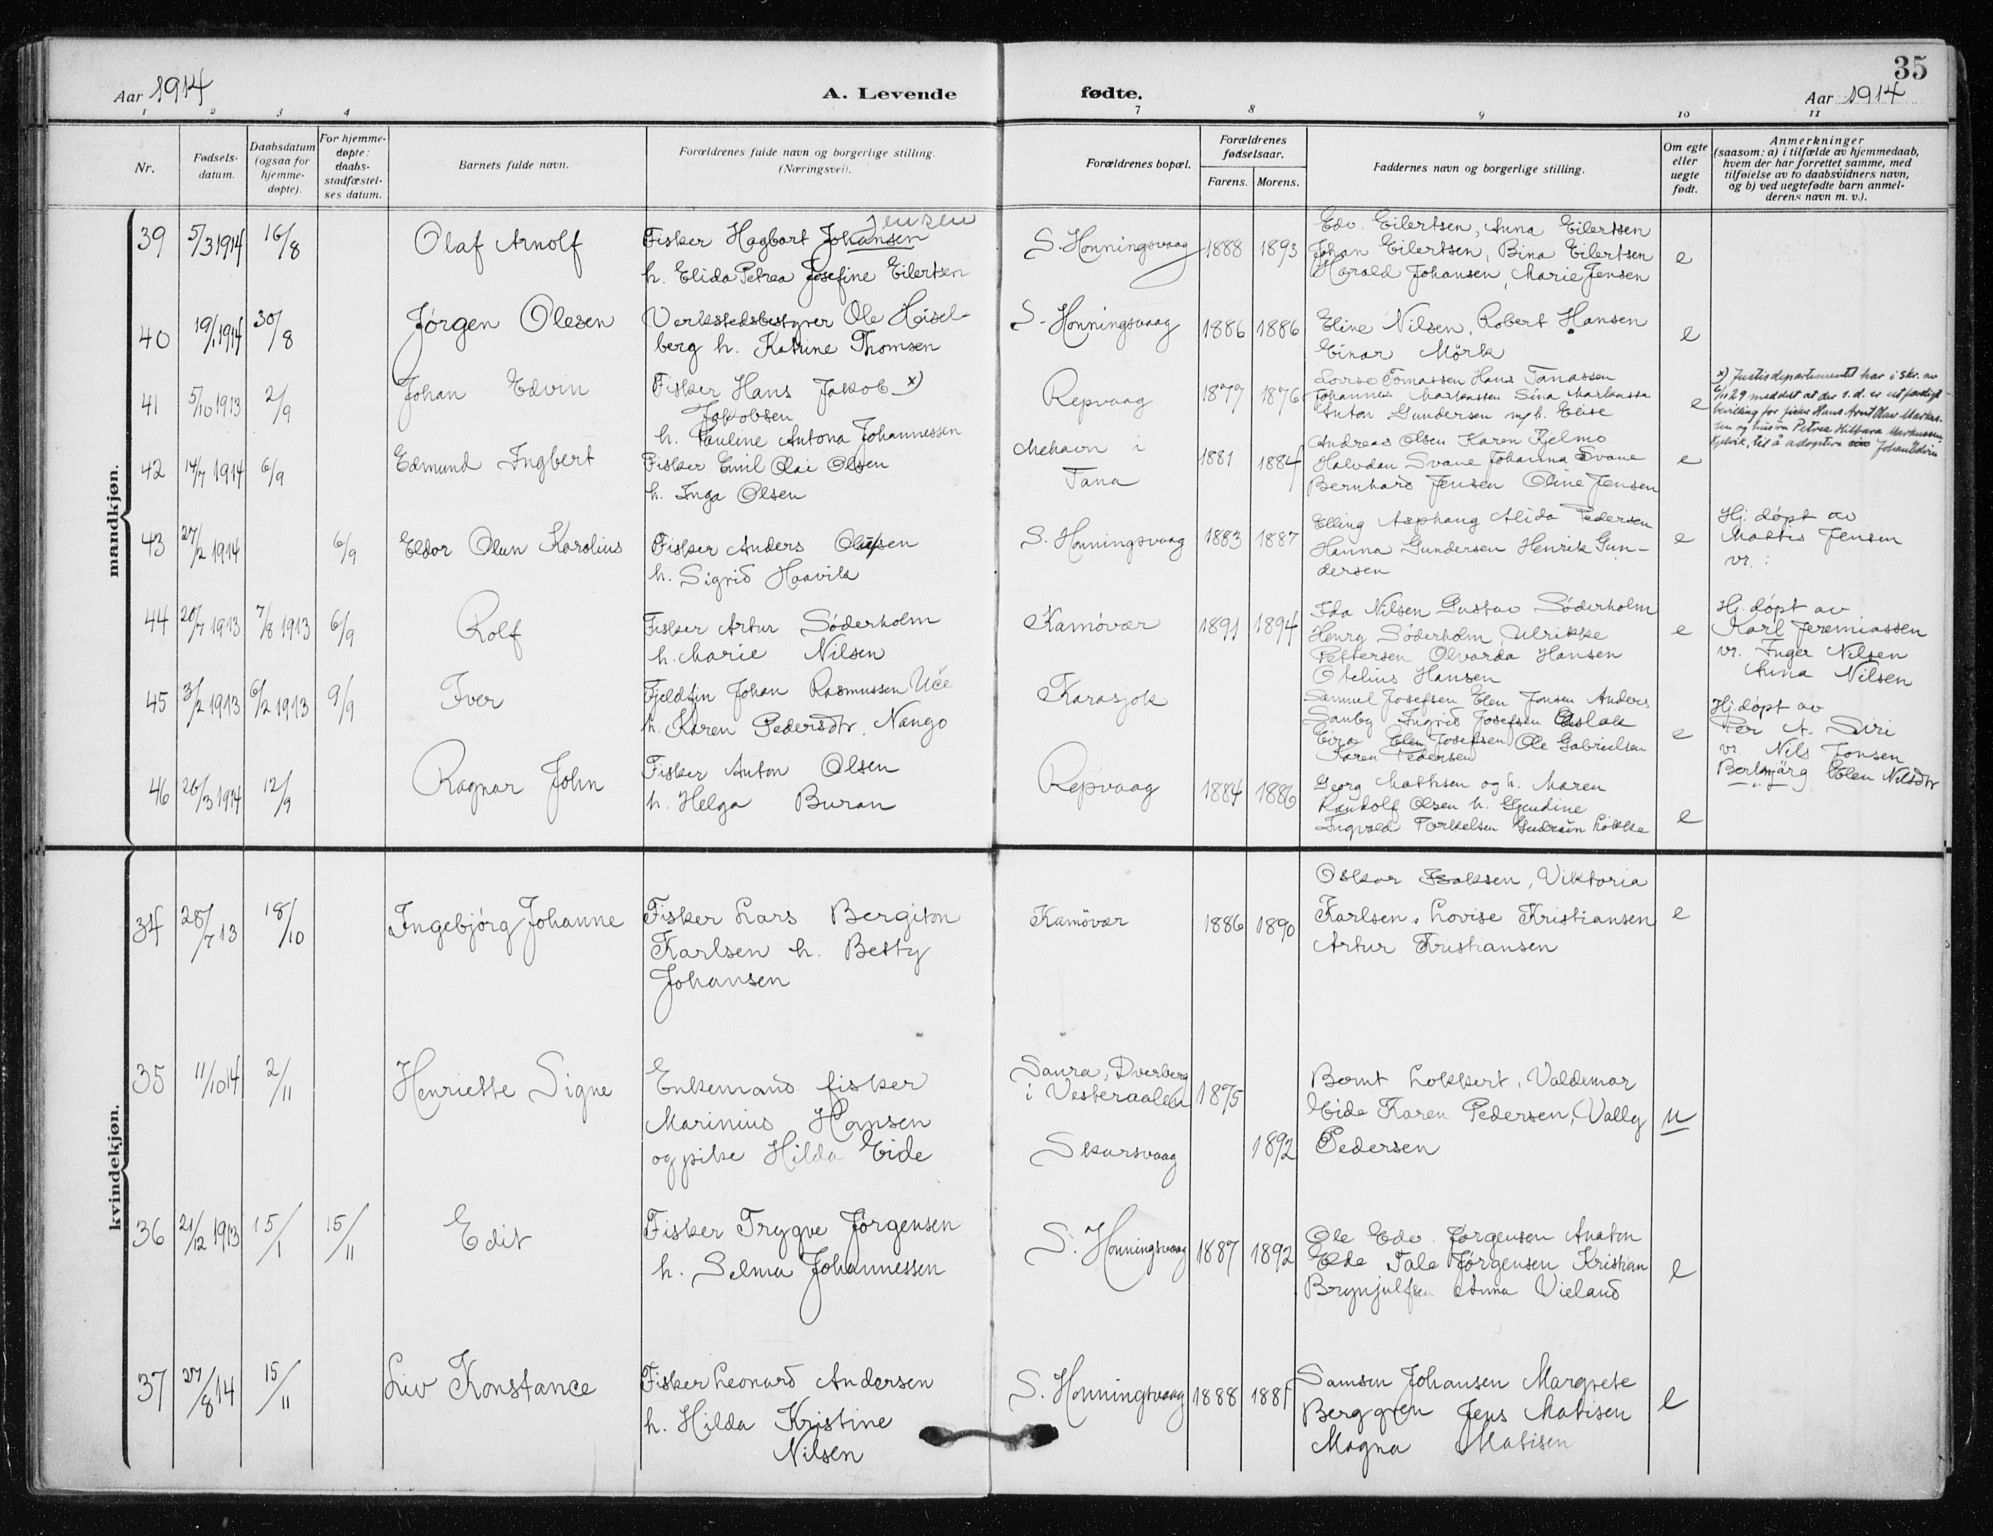 35
Aar 1914 A. Levende fødte. Aar 1914
1 2 3 4 7 8 9 10 11
Nr. Fødsels-datum. Daabsdatum (ogsaa for hjemme-døpte). For hjemme-døpte: daabs-stadfæstel-ses datum. Barnets fulde navn. Forældrenes fulde navn og borgerlige stilling. (Næringsvei). Forældrenes bopæl. Forældrenes fødselsaar. Farens. Morens. Faddernes navn og borgerlige stilling. Om egte eller uegte født. Anmerkninger (saasom: a) i tilfælde av hjemmedaab, hvem der har forrettet samme, med tilføielse av to daabsvidners navn, og b) ved uegtefødte barn anmel-derens navn m. v.).
mandkjøn.
39 5/3 1914 16/8 Olaf Arnolf Fisker Hagbart Johansen Jensen S. Honningsvaag 1888 1893 Edv. Eilertsen, Anna Eilertsen e
h. Elida Petrea Josefine Eilertsen
Johan Eilertsen, Bina Eilertsen
Harald Johansen, Marie Jensen
40 19/1 1914 30/8 Jørgen Olesen Verkstedsbestyrer Ole Heisel- S. Honningsvaag 1886 1886 Eline Nilsen, Robert Hansen e
berg h. Katrine Thomsen
Einar Mörk
41 5/10 1913 2/9 Johan Edvin Fisker Hans Jakob x) Repvaag 1877 1876 e
Jakobsen
h. Pauline Antona Johannessen
Anton Gundersen og h. Elise
x) Justisdepartementet har i skr. av
42 14/7 1914 6/9 Edmund Ingbert Fisker Emil Olai Olsen Mehavn i 1881 1884 Andreas Olsen Karen Kjelmo e
h. Inga Olsen Tana
Halvdan Svane Johanna Svane
Bernhard Jensen Oline Jensen
43 27/2 1914 6/9 Eldor Olun Karolius Fisker Anders Olsen S. Honningsvaag 1883 1887 Elling Asphaug Alida Pedersen e Hj. døpt av
h. Sigrid Haavik
Hanna Gundersen Henrik Gun-
dersen
Mattis Jensen
vr. :
44 20/7 1913 7/8 1913 6/9 Rolf Fisker Artur Söderholm Kamövær 1891 1894 Ida Nilsen Gustav Söderholm e Hj. døpt av
h. Marie Nilsen
Henry Söderholm, Ulrikke
Pettersen Olvarda Hansen
Otelius Hansen
Karl Jeremiassen
vr. Inger Nilsen
Anna Nilsen
45 3/2 1913 6/2 1913 9/9 Iver Fjeldfin Johan Rasmussen Uče Karasjok Samuel Josefsen Elen Jonsen Anders e Hj. døpt av
h. Karen Pedersdtr. Nango
Sanby Ingrid Josefsen Aslak
Eira Elen Josefsen Ole Gabrielsen
Karen Pedersen
Per A. Siri
vr. Nils Jonsen
Elen Nilsdtr
46 26/3 1914 12/9 Ragnar John Fisker Anton Olsen Repvaag 1884 1886 Georg Mathisen og h. Maren e
h. Helga Buran
Randolf Olsen h. Gjendine
Ingvald Torkelsen Gudrun Løkke
kvindekjøn.
34 28/7 13 18/10 Ingebjørg Johanne Fisker Lars Bergiton Kamövær 1886 1890 Oskar Isaksen, Viktoria e
Karlsen h. Betty
Johansen
Karlsen, Lovise Kristiansen
Artur Kristiansen
35 11/10 14 2/11 Henriette Signe Enkemand fisker Saura, Dverberg i Vesteraalen 1875 Bernt Lokkert, Valdemar u
Marinius Hansen
og pike Hilda Eide Skarsvaag 1892
Eide Karen Pedersen, Vally
Pedersen
36 21/12 1913 15/1 15/11 Edit Fisker Trygve Jørgensen S. Honningsvaag 1887 1892 Ole Edv. Jørgensen Anton e
h. Selma Johannessen
Elde Tale Jørgensen Kristian
Brynjulfsen Anna Vieland
37 27/8 14 15/11 Liv Konstance Fisker Leonard Andersen S. Honningsvaag 1888 1881 Samson Johansen Margrete e
h. Hilda Kristine
Nilsen
Berggren Jens Matisen
Magna Matisen